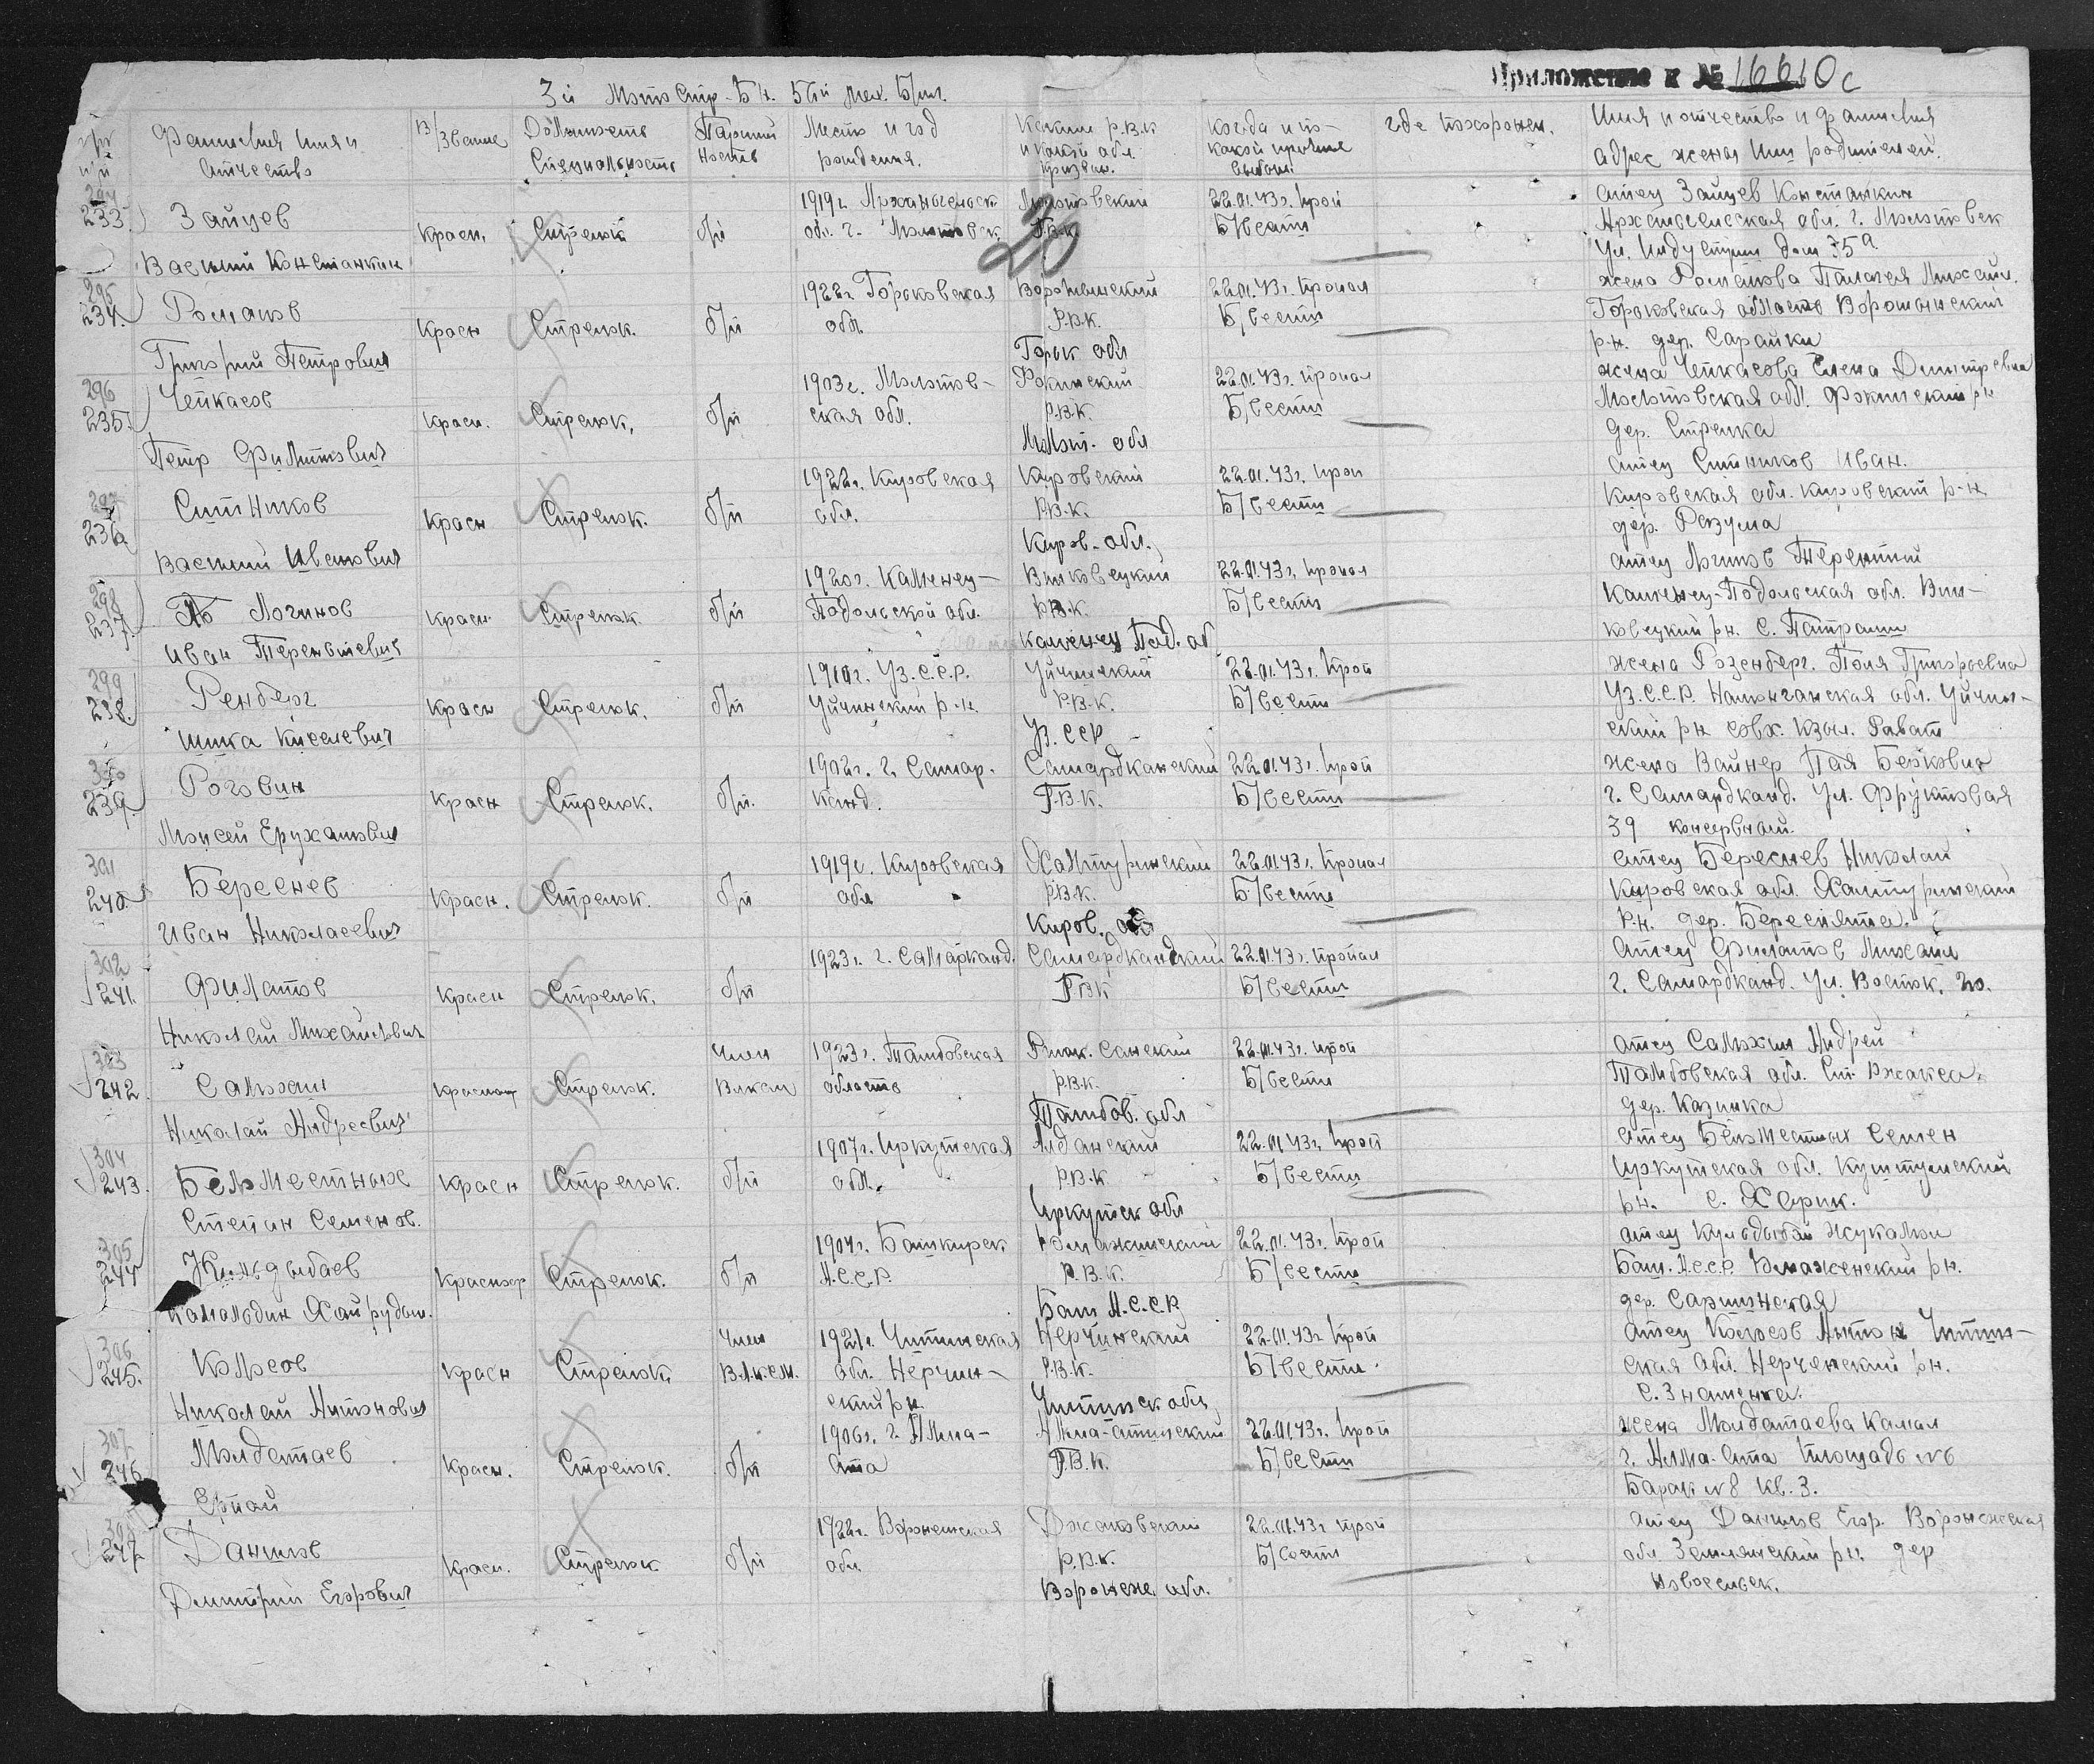 Приложение к № 16610с
3й Мото Стр. Бн. 5ой мех. Бриг.
№ п/п Фамилия имя и отчество В/Звание Должность Специальность Партийность Место и год рождения. Каким Р.В.К и какой обл. призван. Когда и по какой причине выбыл Где похоронен. Имя и отчество и фамилия адрес жены или родителей.
294 233. Зайцев Красн. Стрелок б/п 1919г. Архангельск Молотовский 22.01.43г. проп отец Зайцев Констанкин
обл. г. Молотовск Г.В.К. Б/вести Архангельская обл. г. Молотовск
Василий Констанкин 20 Ул. Индустрии дом 35а
295 234. Романов Красн Стрелок. б/п 1922г. Горьковская 22.01.43г. пропал жена Романова Палагея Михайл.
обл. Р.В.К. Б/вести Горьковская область
Григорий Петрович Горьк обл р-н. дер. Сарайки
296 235. Чепкасов Красн. Стрелок. б/п 1903г. Молотов- Фокинский 22.01.43г. пропал жена Чепкасова Елена Дмитревна
ская обл. Р.В.К. Б/вести Молотовская обл. Фокинский рн
Петр Филиппович Молот. обл дер. Стрелка
297 236 Ситников Красн Стрелок. б/п 1922г. Кировская Кировский 22.01.43г. проп отец Ситников Иван.
обл. Р.В.К. Б/вести Кировская обл. Кировский р-н
Василий Иванович Киров. обл. дер. Резума
298 237. Логинов Красн. Стрелок б/п 1920г. Каменец- Виньковецкий 22.01.43г. пропал отец Логинов Терентий
Подольской обл. Р.В.К. Б/вести Каменец-Подольская обл. Вин-
Иван Терентьевич Каменец Под. об ковецкий рн. с.
299 238. Ренберг Красн Стрелок. б/п 1910г. Уз.С.С.Р. Уйчинский 22.01.43г. проп жена Розенберг. Поля Григорьевна
Уйчинский р-н. Р.В.К. Б/вести Уз.С.С.Р. Наманганская обл. Уйчин-
Шика Киселевич Уз. ССР ский рн совх. Кзыл. Рават
300 239. Роговин Красн Стрелок. б/п. 1902г. г. Самар- Самардканский 22.01.43г. проп жена Вайнер Пая Берковна
канд. Г.В.К. Б/вести г. Самардканд. Ул. Фруктовая
Моисей Ерухамович 39
301 240. Береснев Красн. Стрелок. б/п 1919г. Кировская Халтуринский 22.01.43г. пропал отец Береснев Николай
обл Р.В.К. Б/вести Кировская обл. Халтуринский
Иван Николаевич Киров. обл Р.н. дер. Береснята.
302 241. Филатов Красн Стрелок. б/п 1923г. г. Самарканд. Самардканский 22.01.43г. пропал отец Филатов Михаил
ГВК Б/вести г. Самардканд. Ул. Восток. 20.
Николай Михайлович
303 242. Самохин Стрелок. Член 1923г. Тамбовская 22.01.43г. проп отец Самохин Андрей
область Р.В.К. Б/вести Тамбовская обл. Ст. Ржакса.
Николай Андреевич Тамбов. обл дер. Казинка
304 243. Безместных Красн Стрелок. б/п 1907г. Иркутская 22.01.43г. проп отец Безместных Семен
обл. Р.В.К. Б/вести Иркутская обл. Куйтунский
Степан Семенов. Иркутск обл рн. с. Харик.
305 244 Кульдыбаев Красноар Стрелок. б/п 1904г. Башкирск 22.01.43г. проп отец
А.С.С.Р. Р.В.К. Б/вести Баш. А.С.С.Р. рн.
Камальдин Хайрудин. Баш А.С.С.Р. дер.
306 245. Колосов Красн Стрелок. Член 1921г. Читинская Нерчинский 22.01.43г проп отец Колосов Антон Читин-
В.Л.К.С.М. обл. Нерчин- Р.В.К. Б/вести ская обл. Нерченский рн.
Николай Антонович ский рн. Читинск обл. с. Знаменка.
307 246. Молдатаев Красн. Стрелок. б/п 1906г. г. Алма- Алма-атинский 22.01.43г. проп жена Молдатаева Камал
Ата Г.В.К. Б/вести г. Алма-Ата площадь №6
Барак №8 кв. 3.
308 247 Данилов Красн. Стрелок б/п 1922г. Воронежская 22.01.43г проп отец Данилов Егор. Воронежская
обл. Р.В.К. Б/вести обл. Землянский рн. дер
Дмитрий Егорович Воронеж. обл.